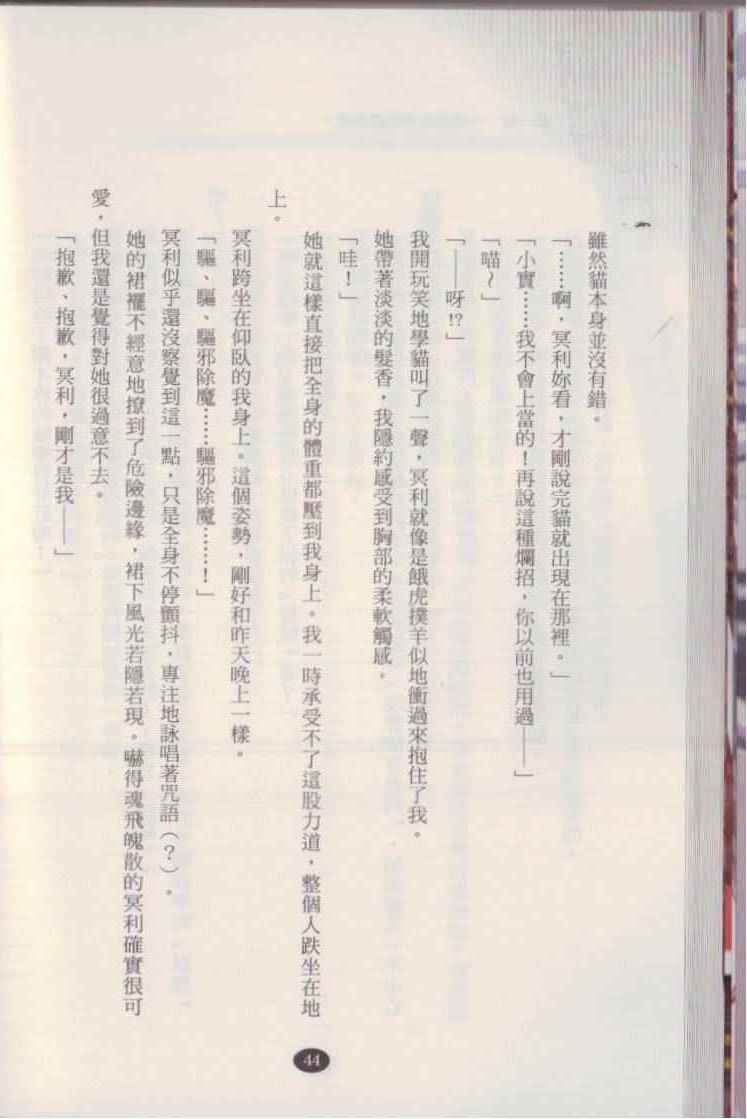 雖然貓本身並沒有錯。
「……啊，冥利妳看，才剛說完貓就出現在那裡。」
「小實……我不會上當的！再說這種爛招，你以前也用過——」
「喵～」
「——呀!?」
我開玩笑地學貓叫了一聲，冥利就像是餓虎撲羊似地衝過來抱住了我。
她帶著淡淡的髮香，我隱約感受到胸部的柔軟觸感。
「哇！」
她就這樣直接把全身的體重都壓到我身上。我一時承受不了這股力道，整個人跌坐在地
上。
冥利跨坐在仰臥的我身上。這個姿勢，剛好和昨天晚上一樣。
「驅、驅、驅邪除魔……驅邪除魔……！」
冥利似乎還沒察覺到這一點，只是全身不停顫抖，專注地詠唱著咒語（？）。
她的裙襬不經意地撩到了危險邊緣，裙下風光若隱若現。嚇得魂飛魄散的冥利確實很可
愛，但我還是覺得對她很過意不去。
「抱歉、抱歉，冥利，剛才是我——」
44